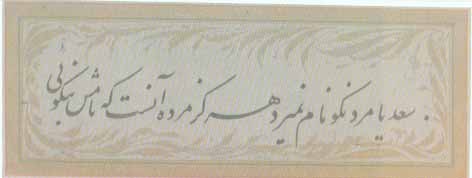 سعدیا مرد نکونام نمیرد هرگز مرده آنست که نامش بنکوئی